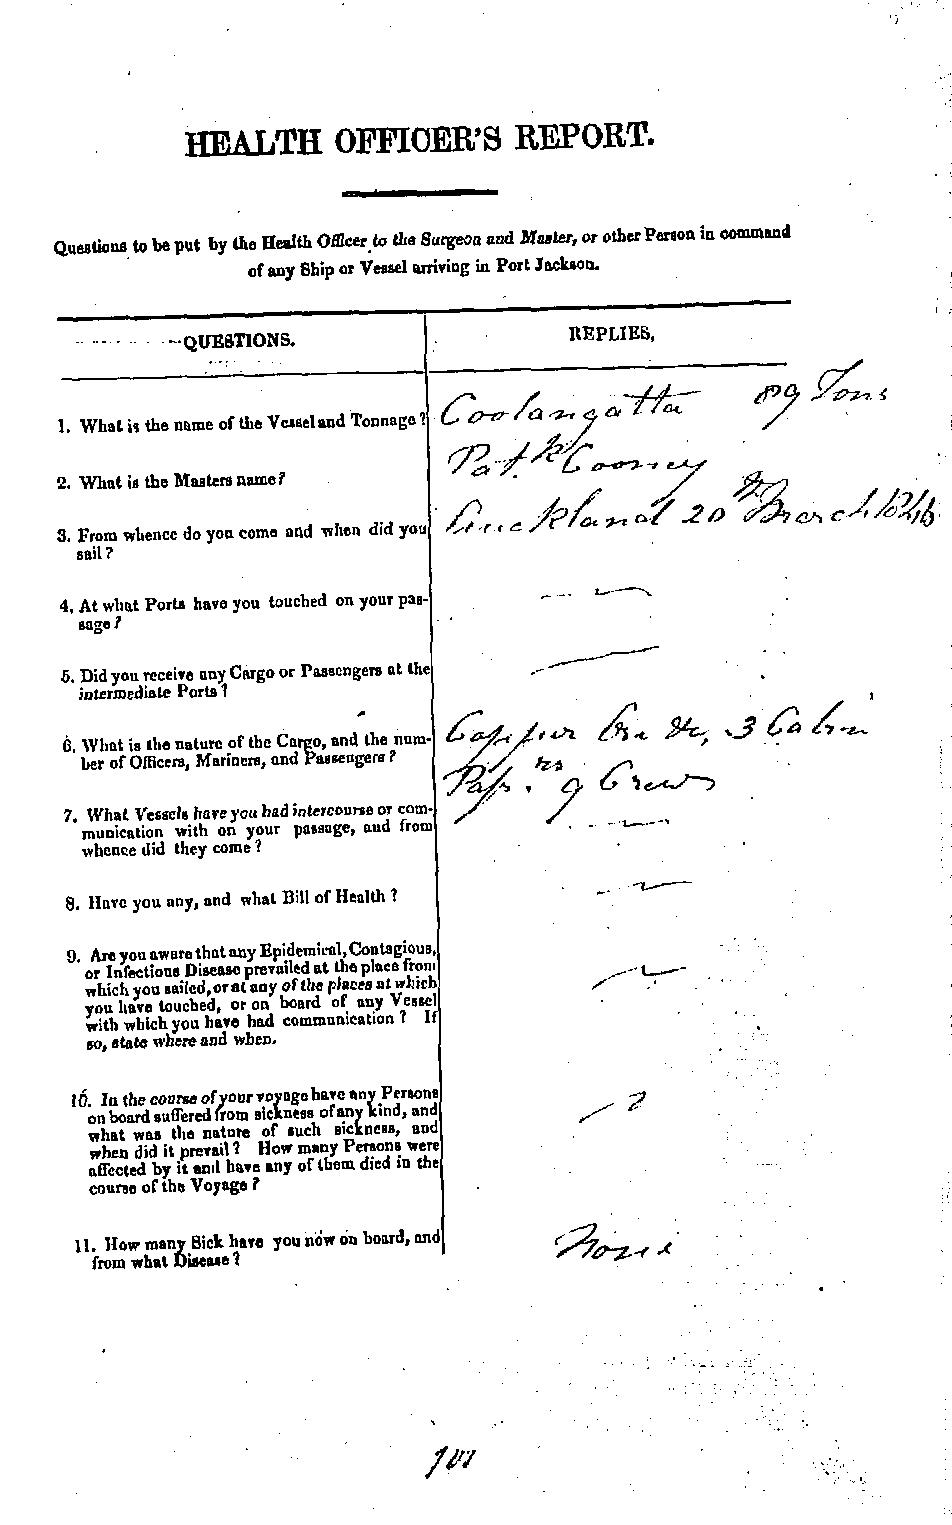 HEALTH OFFICER'S REPORT.
Questions to be put by the Health Officer to the Surgeon and Master, or other Person in command
of any Ship or Vessel arriving in Port Jackson.
QUESTIONS.
REPLIES,
1. What is the name of the Vessel and Tonnage?
Coolangatta 89 Tons
2. What is the Masters name?
Pat.k Cooney
3. From whence do you come and when did you
sail?
Auckland 20th March 1846
4. At what Ports have you touched on your pas-
sage?
5. Did you receive any Cargo or Passengers at the
intermediate Ports?
6. What is the nature of the Cargo, and the num-
ber of Officers, Mariners, and Passengers?
Copper Ore &c, 3 Cabin
Pass.rs 9 Crew
7. What Vessels have you had intercourse or com-
munication with on your passage, and from
whence did they come?
8. Have you any, and what Bill of Health?
9. Are you aware that any Epidemical, Contagious,
or Infectious Disease prevailed at the place from
which you sailed, or at any of the places at which
you have touched, or on board of any Vessel
with which you have had communication? If
so, state where and when.
10. In the course of your voyage have any Persons
on board suffered from sickness of any kind, and
what was the nature of such sickness, and
when did it prevail? How many Persons were
affected by it and have any of them died in the
course of the Voyage?
11. How many Sick have you now on board, and
from what Disease?
None